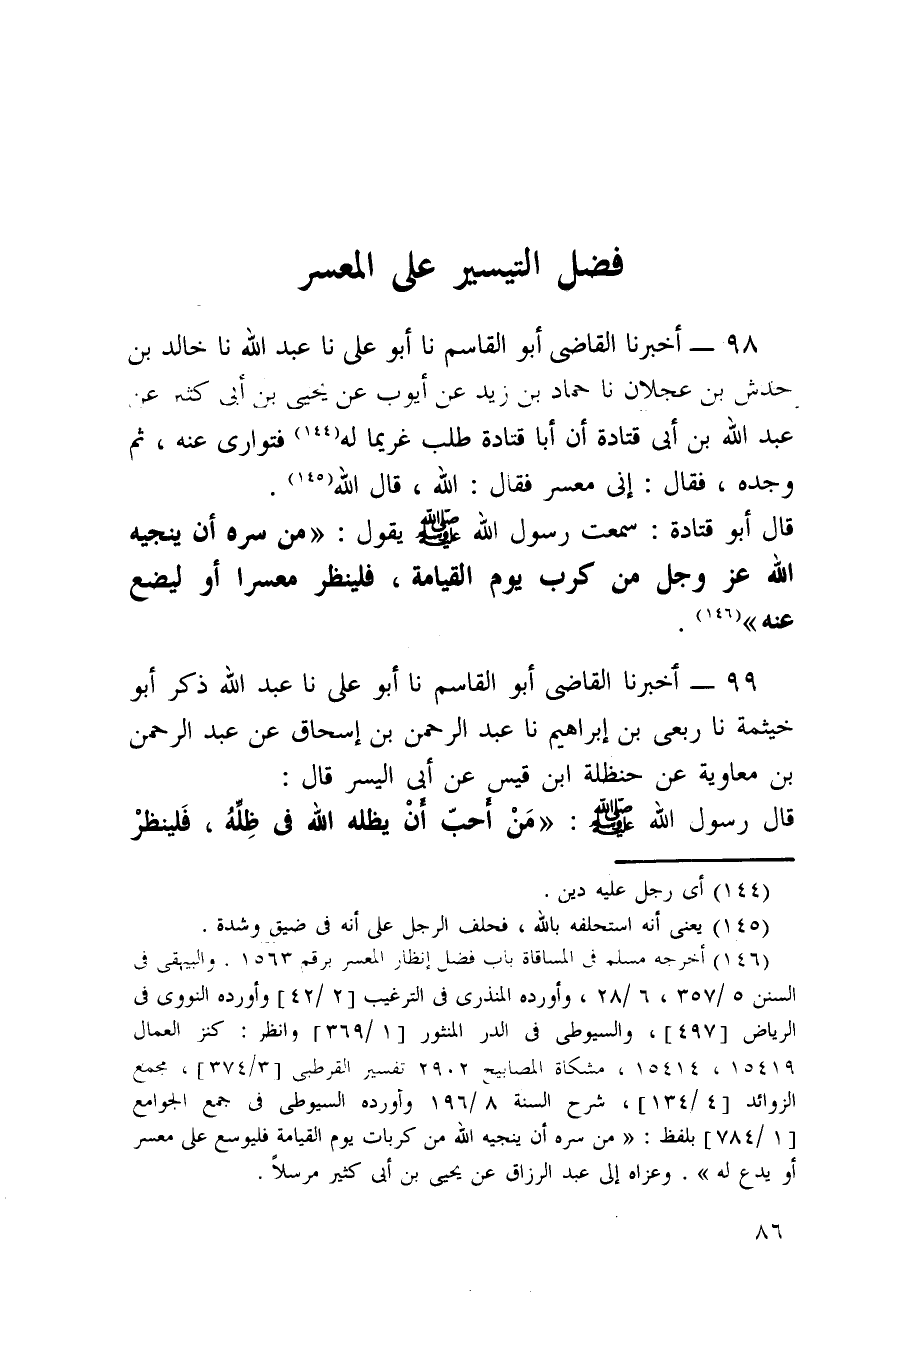 فضل التيسير على المعسر
٩٨ ـــ أخبرنا القاضى أبو القاسم نا أبو على نا عبد الله نا خالد بن
خدش بن عجلان نا حماد بن زيد عن أيوب عن يحيى بن أبى كثير عن
عبد الله بن أبى قتادة أن أبا قتادة طلب غريما له(١٤٤) فتوارى عنه ، ثم
وجده ، فقال : إنى معسر فقال : الله ، قال الله(١٤٥) .
قال أبو قتادة : سمعت رسول الله ﷺ يقول : «من سره أن ينجيه
الله عز وجل من كرب يوم القيامة ، فلينظر معسرا أو ليضع
عنه»(١٤٦) .
٩٩ ـــ أخبرنا القاضى أبو القاسم نا أبو على نا عبد الله ذكر أبو
خيثمة نا ربعى بن إبراهيم نا عبد الرحمن بن إسحاق عن عبد الرحمن
بن معاوية عن حنظلة ابن قيس عن أبى اليسر قال :
قال رسول الله ﷺ : «مَنْ أَحبّ أَنْ يظله الله فى ظِلِّهُ ، فَلينظرْ
(١٤٤) أى رجل عليه دين .
(١٤٥) يعنى أنه استحلفه بالله ، فحلف الرجل على أنه فى ضيق وشدة .
(١٤٦) أخرجه مسلم فى المساقاة باب فضل إنظار المعسر برقم ١٥٦٣ . والبيهقى فى
السنن ٣٥٧/٥ ، ٢٨/٦ ، وأورده المنذرى فى الترغيب [٤٢/٢] وأورده النووى فى
الرياض [٤٩٧] ، والسيوطى فى الدر المنثور [٣٦٩/١] وانظر : كنز العمال
١٥٤١٩ ، ١٥٤١٤ ، مشكاة المصابيح ٢٩٠٢ تفسير القرطبى [٣٧٤/٣] ، مجمع
الزوائد [١٣٤/٤] ، شرح السنة ١٩٦/٨ وأورده السيوطى فى جمع الجوامع
[٧٨٤/١] بلفظ : « من سره أن ينجيه الله من كربات يوم القيامة فليوسع على معسر
أو يدع له » . وعزاه إلى عبد الرزاق عن يحيى بن أبى كثير مرسلاً .
٨٦